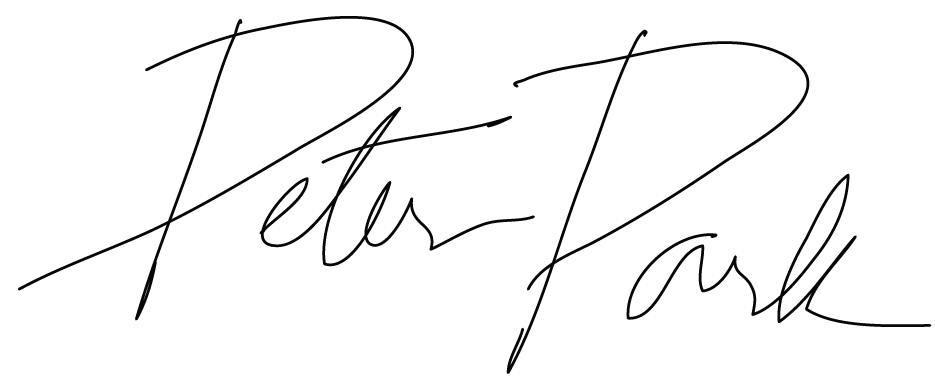 Peter Park